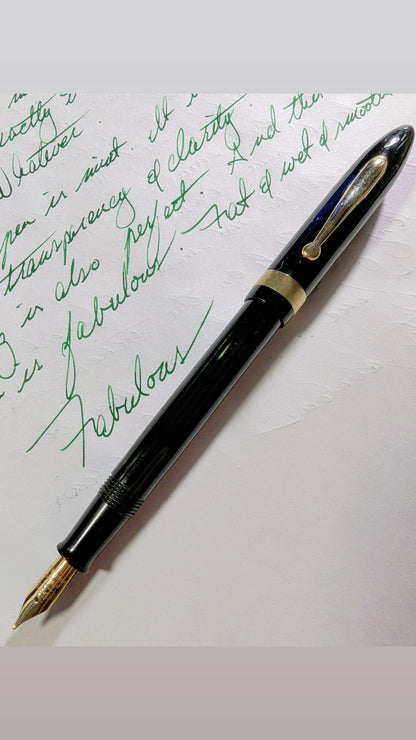 Whatever.
pen is mint. It
transparency & clarity.
is also perfect. And the
is fabulous. Fat & wet & smooth
Fabulous